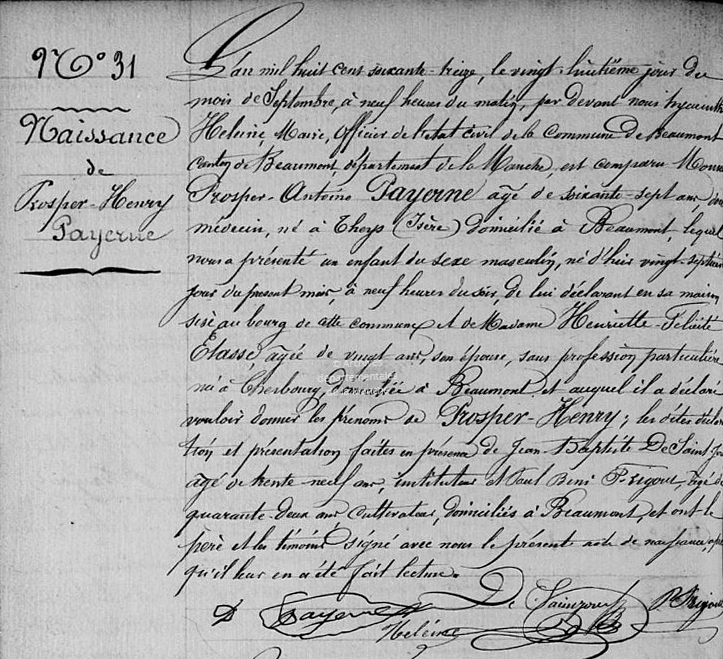 N° 31
Naissance
de
Prosper-Henry
Payerne
L'an mil huit cent soixante-treize, le vingt-huitième jour du
mois de Septembre, à neuf heures du matin, par devant nous hyacinthe
Heleine, Maire, Officier de l'état civil de la Commune de Beaumont
canton de Beaumont, département de la Manche, est comparu Monsieur
Prosper-Antoine Payerne âgé de soixante-sept ans,
médecin, né à Theys (Isère) domicilié à Beaumont, lequel
nous a présenté un enfant du sexe masculin, né d'hier vingt-septième
jour du présent mois, à neuf heures du soir, de lui déclarant en sa maison
sise au bourg de cette commune et de Madame Henriette-Félicité
Élasse âgée de vingt ans, son épouse, sans profession particulière
née à Cherbourg, domiciliée à Beaumont, et auquel il a déclaré
vouloir donner les prénoms de Prosper-Henry; les dites déclara
tion et présentation faites en présence de Jean-Baptiste De Saint
âgé de trente-neuf ans, instituteur et Paul Beni P. rigout, âgé de
quarante-deux ans cultivateur, domiciliés à Beaumont, et ont le
père et les témoins signé avec nous le présent acte de naissance, après
qu'il leur en a été fait lecture.
D Payerne De Saintjours P. Rigout
Heleine